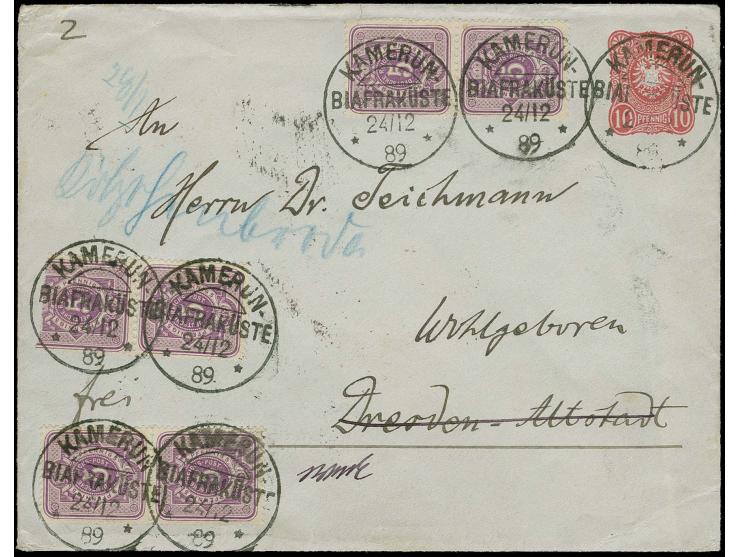 2
KAMERUN-
BIAFRAKÜSTE
24/12
89
KAMERUN-
BIAFRAKÜSTE
24/12
89
KAMERUN-
BIAFRAKÜSTE
10 PFENNIG 10
An
Herrn Dr. Teichmann
KAMERUN-
BIAFRAKÜSTE
24/12
89
KAMERUN-
BIAFRAKÜSTE
24/12
89
Wohlgeboren
frei
Dresden-Altstadt
KAMERUN-
BIAFRAKÜSTE
24/12
89
KAMERUN-
BIAFRAKÜSTE
24/12
89